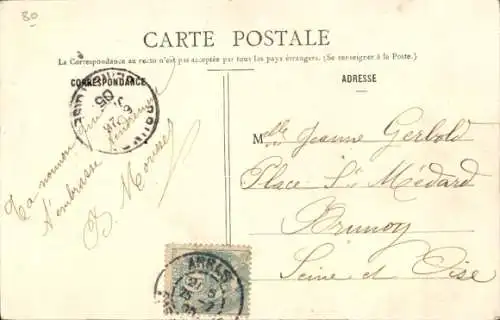 80
CARTE POSTALE
La Correspondance au recto n'est pas acceptée par tous les pays étrangers. (Se renseigner à la Poste.)
CORRESPONDANCE
ADRESSE
Ta
t'embrasse
B.
Mlle Jeanne Gerbold
Place St Médard
Brunoy
Seine et Oise
ARRAS